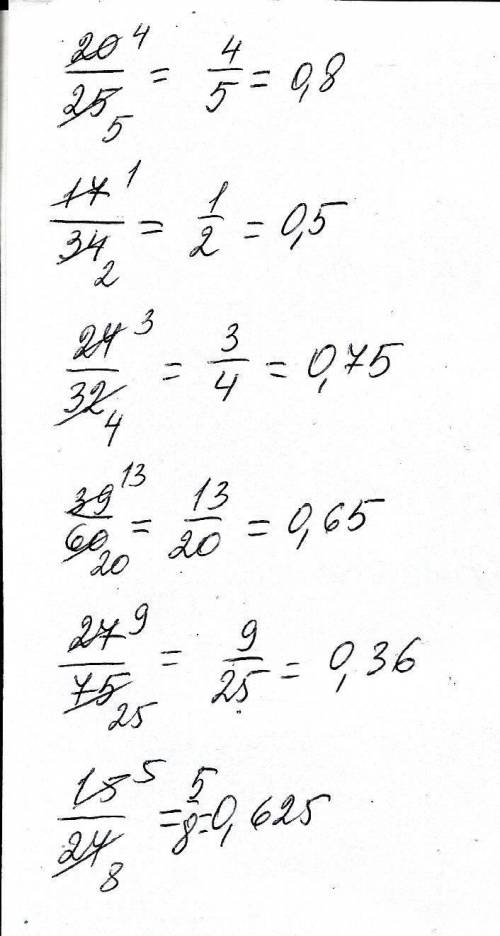 20/25 4/5 = 4/5 = 0,8
17/34 1/2 = 1/2 = 0,5
24/32 3/4 = 3/4 = 0,75
39/60 13/20 = 13/20 = 0,65
27/75 9/25 = 9/25 = 0,36
15/24 5/8 = 5/8 = 0,625